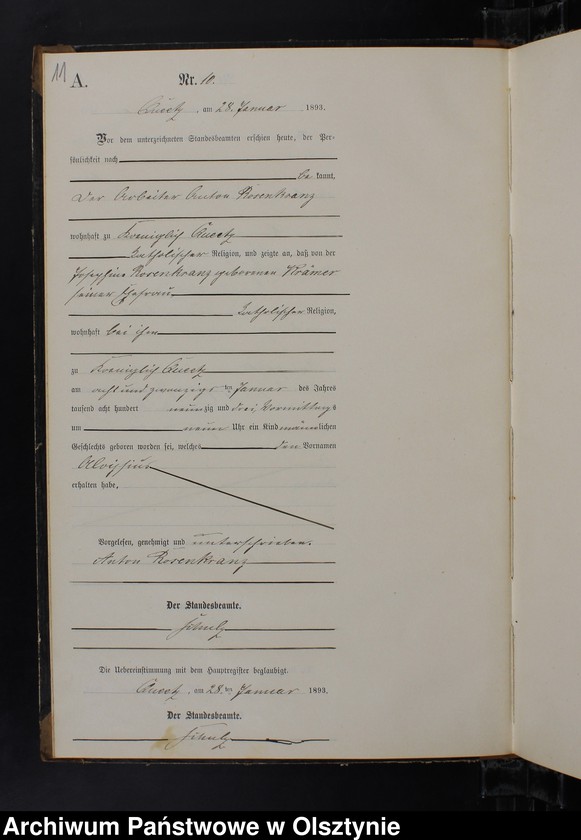 11
A.
Nr. 10.
Queetz, am 28. Januar 1893.
Vor dem unterzeichneten Standesbeamten erschien heute, der Per-
sönlichkeit nach
be kannt,
der Arbeiter Anton Rosenkranz
wohnhaft zu Koeniglich Queetz
katholischer Religion, und zeigte an, daß von der
Josephine Rosenkranz geborenen Krämer
seiner Ehefrau
katholischer Religion,
wohnhaft bei ihm
zu Koeniglich Queetz
am acht und zwanzigs ten Januar des Jahres
tausend acht hundert neun zig und drei Vormittags
um neun Uhr ein Kind männlichen
Geschlechts geboren worden sei, welches den Vornamen
Aloysius
erhalten habe,
Vorgelesen, genehmigt und unterschrieben.
Anton Rosenkranz
Der Standesbeamte.
Schulz
Die Uebereinstimmung mit dem Hauptregister beglaubigt.
Queetz, am 28. ten Januar 1893.
Der Standesbeamte.
Schulz
Archiwum Państwowe w Olsztynie